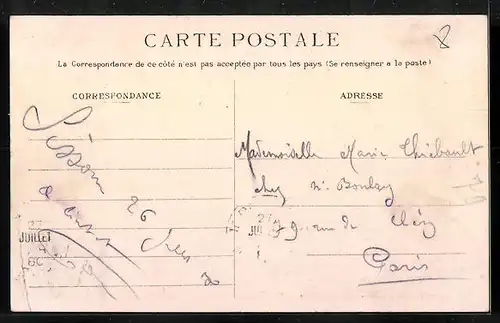 8
CARTE POSTALE
La Correspondance de ce côté n'est pas acceptée par tous les pays (Se renseigner a la poste)
CORRESPONDANCE
ADRESSE
26
JUILLET
Mademoiselle Marie Thiébault
chez Mr Boulay
79 rue de Cléry
Paris